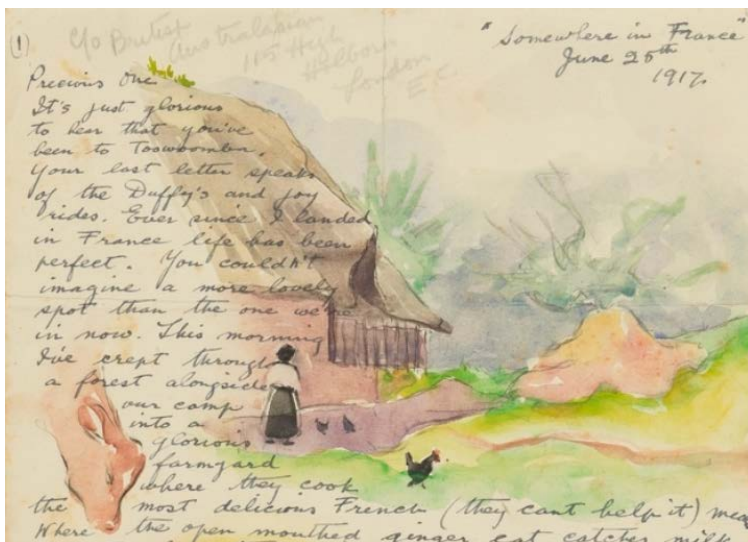 (1)
c/o British
Australasian
115 High
Holborn
London
E.C.
"Somewhere in France"
June 25th
1917.
Precious One
It's just glorious
to hear that you've
been to Toowoomba.
Your last letter speaks
of the Duffy's and joy
rides. Ever since I landed
in France life has been
perfect. You couldn't
imagine a more lovely
spot than the one we're
in now. This morning
I've crept through
a forest alongside
our camp
into a
glorious
farmyard
where they cook
the most delicious French (they cant help it)
Where the open mouthed ginger cat catches milk